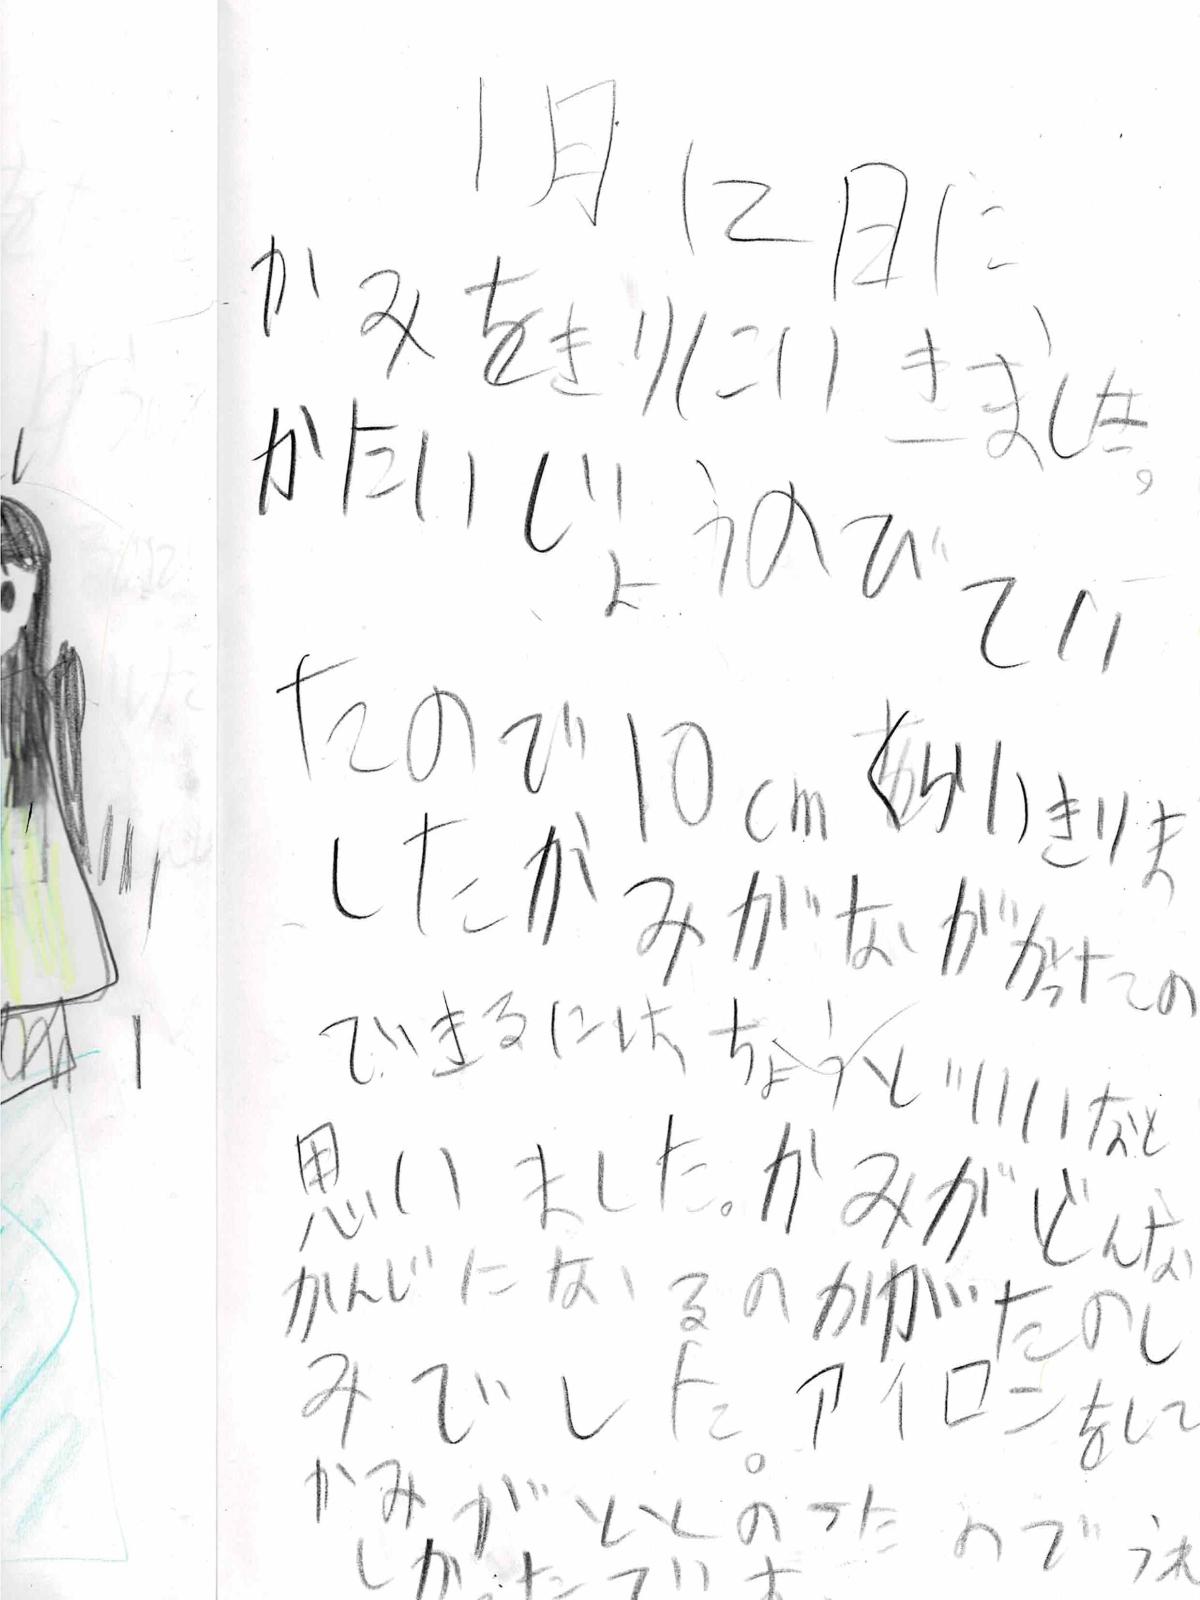 1月12日に
かみをきりにいきました。
かたいじょうのびてい
たので10cmくらいきりま
したかみがながかったの
できるにはちょうどいいなと
思いました。かみがどんな
かんじになるのかがたのし
みでした。アイロンをして
かみがととのったのでうれ
しかったです